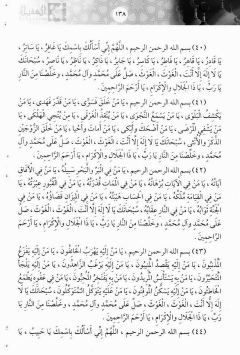 ١٣٨
(٤٠) بسم الله الرحمن الرحيم ، اللَّهُمَّ إِنِّي أَسْأَلُكَ بِاسْمِكَ يَا غَافِرُ ، يَا سَاتِرُ ،
يَا قَادِرُ ، يَا قَاهِرُ ، يَا فَاطِرُ ، يَا كَاسِرُ ، يَا جَابِرُ ، يَا ذَاكِرُ ، يَا نَاظِرُ ، يَا نَاصِرُ ، سُبْحَانَكَ
يَا لا إِلَهَ إِلَّا أَنْتَ ، الْغَوْثَ ، الْغَوْثَ ، صَلِّ عَلَى مُحَمَّدٍ وَآلِ مُحَمَّدٍ ، وَخَلِّصْنَا مِنَ النَّارِ
يَا رَبِّ ، يَا ذَا الْجَلالِ وَالْإِكْرَامِ ، يَا أَرْحَمَ الرَّاحِمِينَ .
(٤١) بسم الله الرحمن الرحيم ، يَا مَنْ خَلَقَ فَسَوَّى ، يَا مَنْ قَدَّرَ فَهَدَى ، يَا مَنْ
يَكْشِفُ الْبَلْوَى ، يَا مَنْ يَسْمَعُ النَّجْوَى ، يَا مَنْ يُنْقِذُ الْغَرْقَى ، يَا مَنْ يُنْجِي الْهَلْكَى ، يَا
مَنْ يَشْفِي الْمَرْضَى ، يَا مَنْ أَضْحَكَ وَأَبْكَى ، يَا مَنْ أَمَاتَ وَأَحْيَا ، يَا مَنْ خَلَقَ الزَّوْجَيْنِ
الذَّكَرَ وَالْأُنْثَى ، سُبْحَانَكَ يَا لا إِلَهَ إِلَّا أَنْتَ ، الْغَوْثَ ، الْغَوْثَ ، صَلِّ عَلَى مُحَمَّدٍ وَآلِ
مُحَمَّدٍ ، وَخَلِّصْنَا مِنَ النَّارِ يَا رَبِّ ، يَا ذَا الْجَلالِ وَالْإِكْرَامِ ، يَا أَرْحَمَ الرَّاحِمِينَ .
(٤٢) بسم الله الرحمن الرحيم ، يَا مَنْ فِي الْبَرِّ وَالْبَحْرِ سَبِيلُهُ ، يَا مَنْ فِي الْآفَاقِ
آيَاتُهُ ، يَا مَنْ فِي الْآيَاتِ بُرْهَانُهُ ، يَا مَنْ فِي الْمَمَاتِ قُدْرَتُهُ ، يَا مَنْ فِي الْقُبُورِ عِبْرَتُهُ ، يَا
مَنْ فِي الْقِيَامَةِ مُلْكُهُ ، يَا مَنْ فِي الْحِسَابِ هَيْبَتُهُ ، يَا مَنْ فِي الْمِيزَانِ قَضَاؤُهُ ، يَا مَنْ فِي
الْجَنَّةِ ثَوَابُهُ ، يَا مَنْ فِي النَّارِ عِقَابُهُ ، سُبْحَانَكَ يَا لا إِلَهَ إِلَّا أَنْتَ ، الْغَوْثَ ، الْغَوْثَ ، صَلِّ
عَلَى مُحَمَّدٍ وَآلِ مُحَمَّدٍ ، وَخَلِّصْنَا مِنَ النَّارِ يَا رَبِّ ، يَا ذَا الْجَلالِ وَالْإِكْرَامِ ، يَا أَرْحَمَ
الرَّاحِمِينَ .
(٤٣) بسم الله الرحمن الرحيم ، يَا مَنْ إِلَيْهِ يَهْرَبُ الْخَائِفُونَ ، يَا مَنْ إِلَيْهِ يَفْزَعُ
الْمُذْنِبُونَ ، يَا مَنْ إِلَيْهِ يَقْصِدُ الْمُنِيبُونَ ، يَا مَنْ إِلَيْهِ يَرْغَبُ الزَّاهِدُونَ ، يَا مَنْ إِلَيْهِ يَلْجَأُ
الْمُتَحَيِّرُونَ ، يَا مَنْ بِهِ يَسْتَأْنِسُ الْمُرِيدُونَ ، يَا مَنْ بِهِ يَفْتَخِرُ الْمُحِبُّونَ ، يَا مَنْ فِي عَفْوِهِ يَطْمَعُ
الْخَاطِئُونَ ، يَا مَنْ إِلَيْهِ يَسْكُنُ الْمُوقِنُونَ ، يَا مَنْ عَلَيْهِ يَتَوَكَّلُ الْمُتَوَكِّلُونَ ، سُبْحَانَكَ يَا لا
إِلَهَ إِلَّا أَنْتَ ، الْغَوْثَ ، الْغَوْثَ ، صَلِّ عَلَى مُحَمَّدٍ وَآلِ مُحَمَّدٍ ، وَخَلِّصْنَا مِنَ النَّارِ يَا
رَبِّ ، يَا ذَا الْجَلالِ وَالْإِكْرَامِ ، يَا أَرْحَمَ الرَّاحِمِينَ .
(٤٤) بسم الله الرحمن الرحيم ، اللَّهُمَّ إِنِّي أَسْأَلُكَ بِاسْمِكَ يَا حَبِيبُ ، يَا